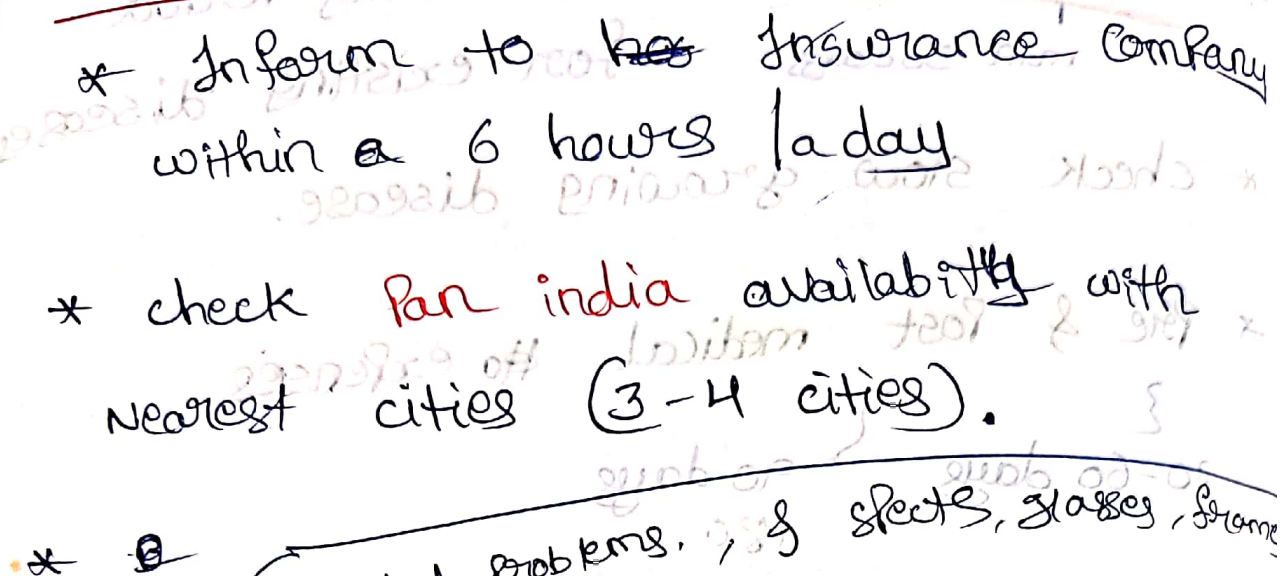 * Inform to Insurance Company
within a 6 hours /a day
* check Pan india availability with
Nearest cities (3-4 cities).
* problems., & spects, glasses, frame